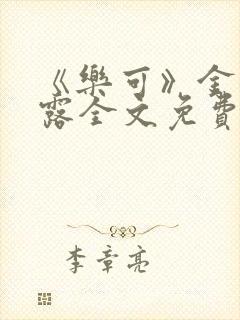 《樂可》金
露全文免費
李章亮